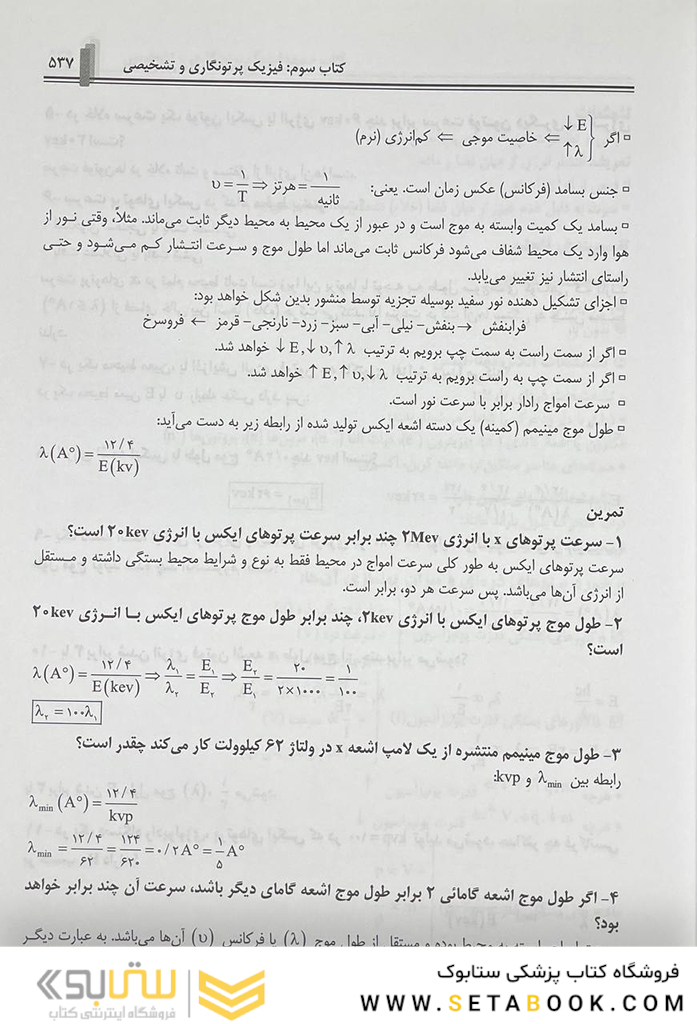 کتاب سوم: فیزیک پرتونگاری و تشخیصی ۵۳۷
▫ اگر ↓E ↑λ } ⇐ خاصیت موجی ⇐ کم‌انرژی (نرم)
▫ جنس بسامد (فرکانس) عکس زمان است. یعنی: ۱/ثانیه = هرتز ⇒ υ = ۱/T
▫ بسامد یک کمیت وابسته به موج است و در عبور از یک محیط به محیط دیگر ثابت می‌ماند. مثلاً، وقتی نور از
هوا وارد یک محیط شفاف می‌شود فرکانس ثابت می‌ماند اما طول موج و سرعت انتشار کم می‌شود و حتی
راستای انتشار نیز تغییر می‌یابد.
▫ اجزای تشکیل دهنده نور سفید بوسیله تجزیه توسط منشور بدین شکل خواهد بود:
فرابنفش → بنفش- نیلی- آبی- سبز- زرد- نارنجی- قرمز ← فروسرخ
▫ اگر از سمت راست به سمت چپ برویم به ترتیب ↓E,↓υ,↑λ خواهد شد.
▫ اگر از سمت چپ به راست برویم به ترتیب ↑E,↑υ,↓λ خواهد شد.
▫ سرعت امواج رادار برابر با سرعت نور است.
▫ طول موج مینیمم (کمینه) یک دسته اشعه ایکس تولید شده از رابطه زیر به دست می‌آید:
λ(A°) = ۱۲/۴ / E(kv)
تمرین
۱- سرعت پرتوهای x با انرژی ۲Mev چند برابر سرعت پرتوهای ایکس با انرژی ۲۰kev است؟
سرعت پرتوهای ایکس به طور کلی سرعت امواج در محیط فقط به نوع و شرایط محیط بستگی داشته و مستقل
از انرژی آن‌ها می‌باشد. پس سرعت هر دو، برابر است.
۲- طول موج پرتوهای ایکس با انرژی ۲kev، چند برابر طول موج پرتوهای ایکس با انرژی ۲۰kev
است؟
λ(A°) = ۱۲/۴ / E(kev) ⇒ λ₁/λ₂ = E₁/E₂ ⇒ E₂/E₁ = ۲۰/۲×۱۰۰۰ = ۱/۱۰۰
λ₂ = ۱۰۰λ₁
۳- طول موج مینیمم منتشره از یک لامپ اشعه x در ولتاژ ۶۲ کیلوولت کار می‌کند چقدر است؟
رابطه بین λmin و kvp:
λmin (A°) = ۱۲/۴ / kvp
λmin = ۱۲/۴ / ۶۲ = ۱۲۴/۶۲۰ = ۰/۲A° = ۱/۵ A°
۴- اگر طول موج اشعه گامائی ۲ برابر طول موج اشعه گامای دیگر باشد، سرعت آن چند برابر خواهد
بود؟
به محیط بوده و مستقل از طول موج (λ) یا فرکانس (υ) آن‌ها می‌باشد. به عبارت دیگر
فروشگاه کتاب پزشکی ستابوک
WWW.SETABOOK.COM
ستابوک
فروشگاه اینترنتی کتاب